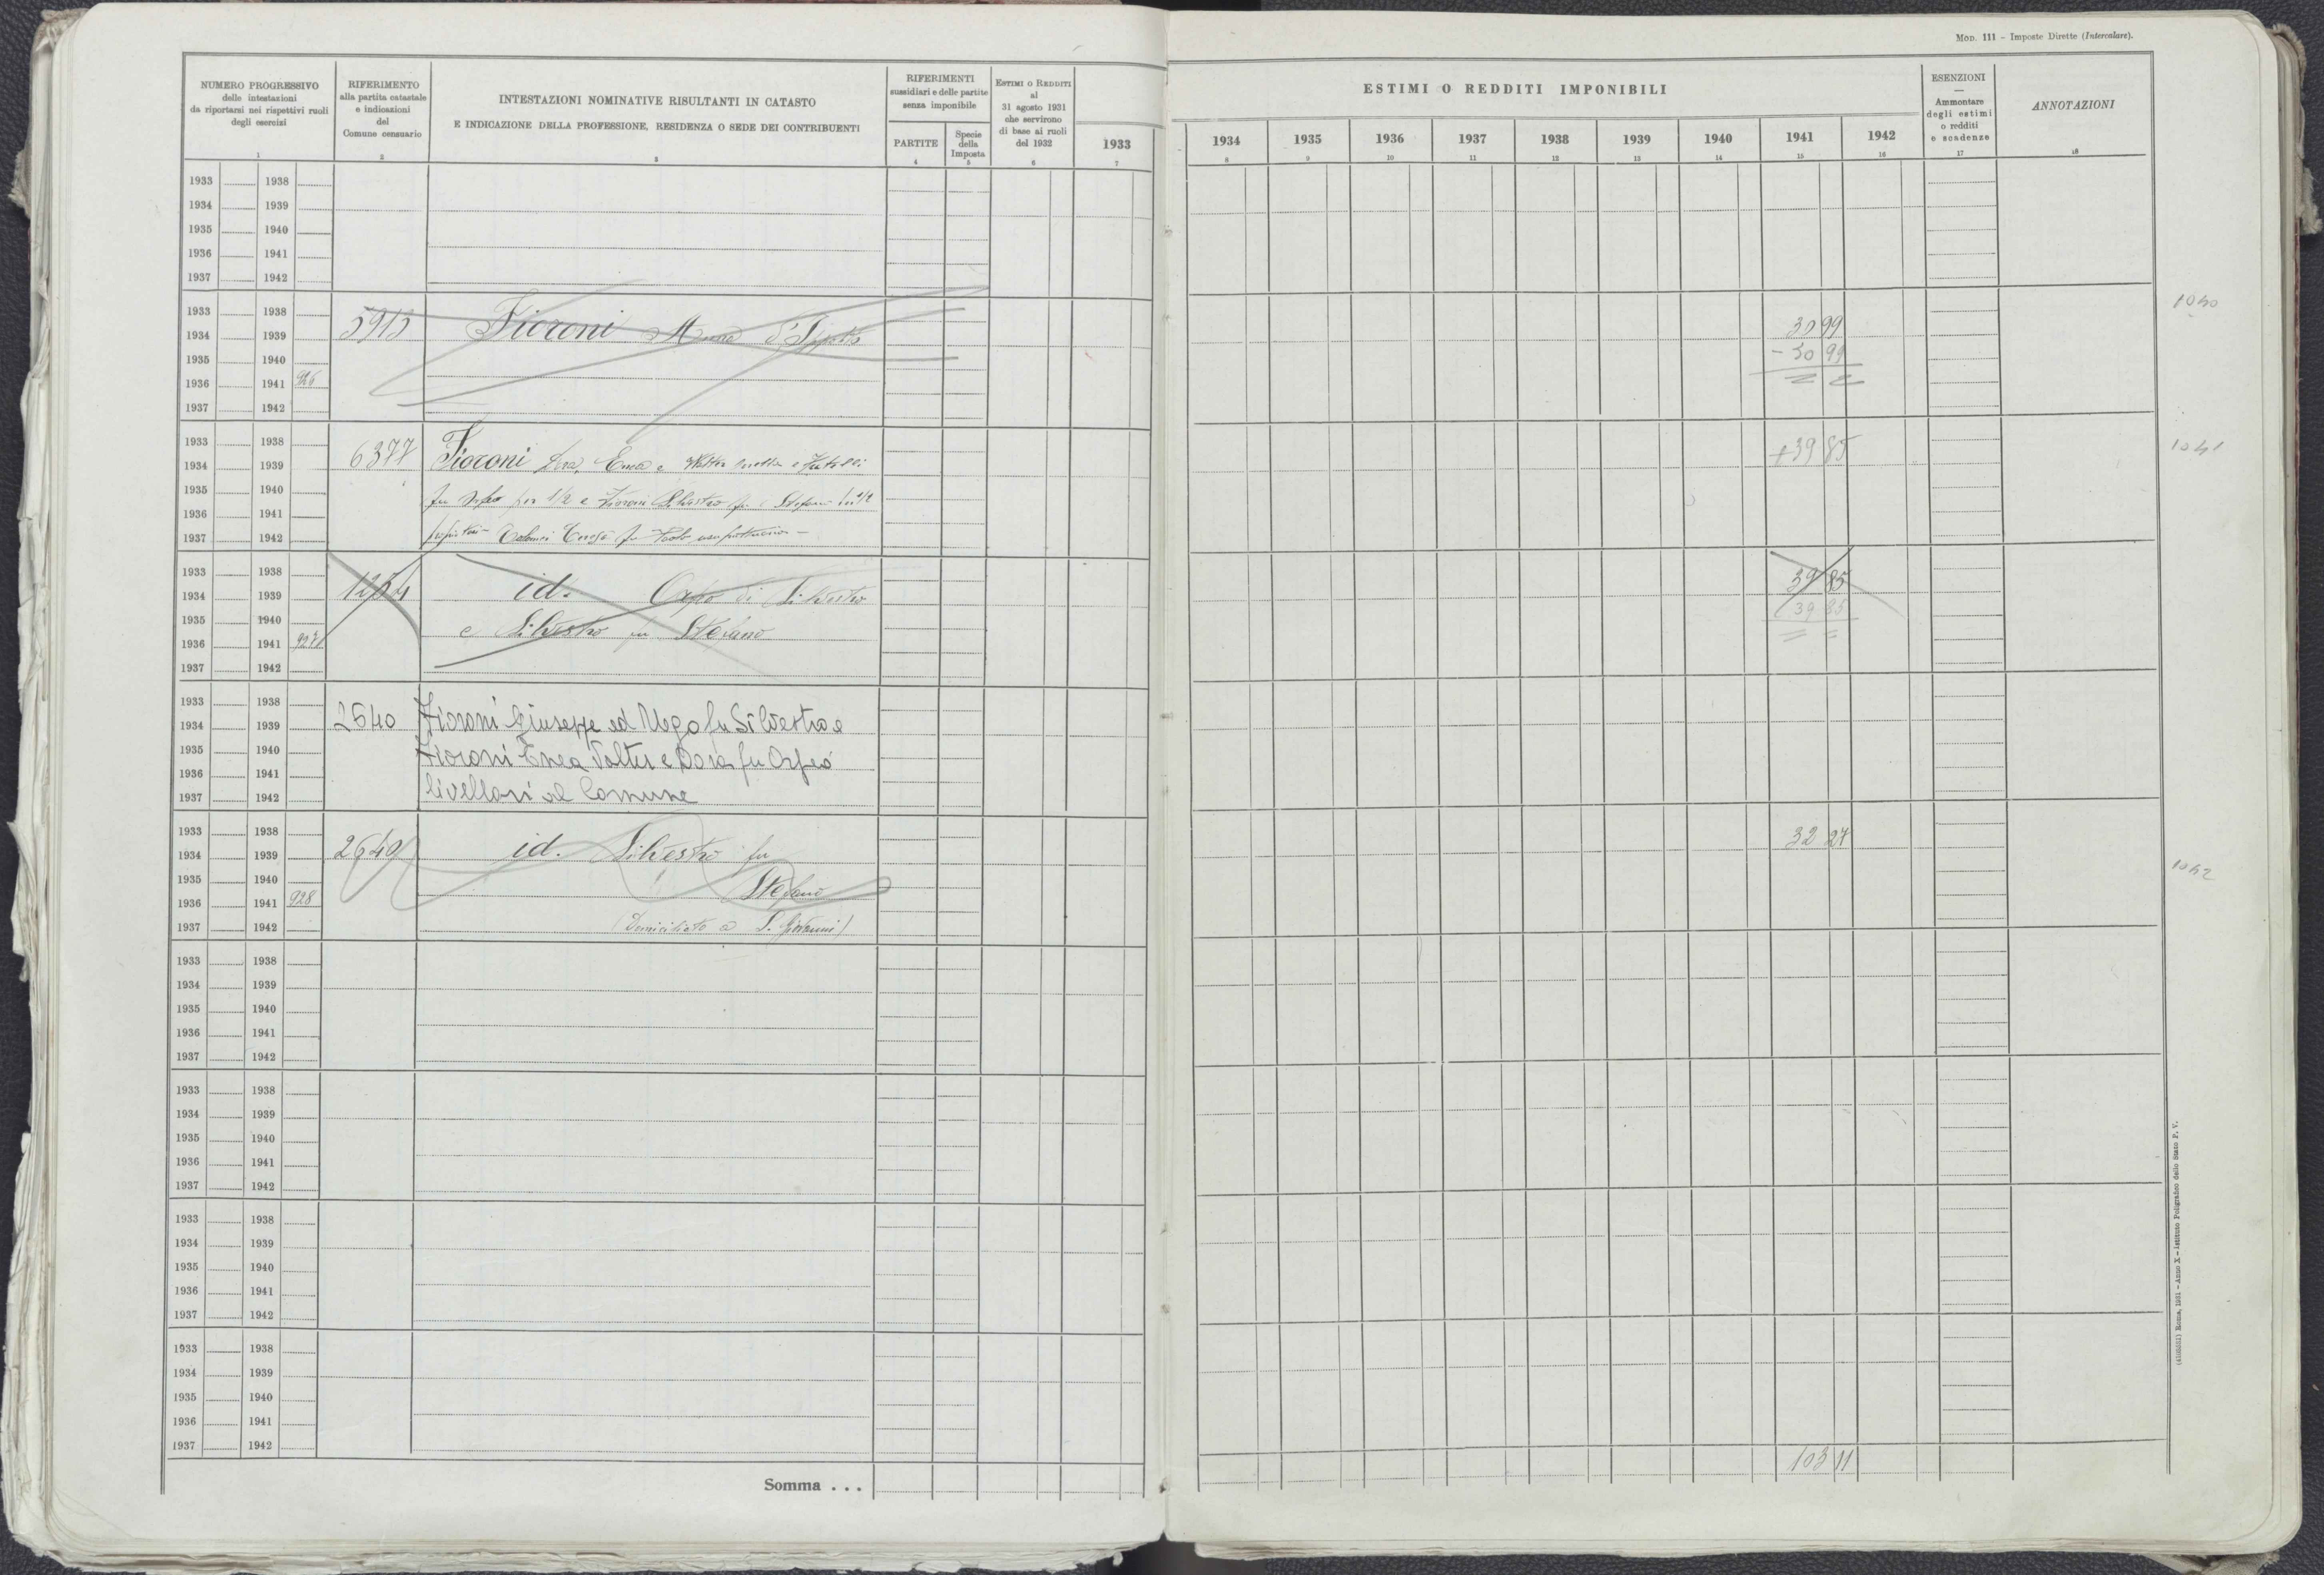 Mod. 111 - Imposte Dirette (Intercalare).
NUMERO PROGRESSIVO
delle intestazioni
da riportarsi nei rispettivi ruoli
degli esercizi
1
RIFERIMENTO
alla partita catastale
e indicazioni
del
Comune censuario
2
INTESTAZIONI NOMINATIVE RISULTANTI IN CATASTO
E INDICAZIONE DELLA PROFESSIONE, RESIDENZA O SEDE DEI CONTRIBUENTI
3
RIFERIMENTI
sussidiari e delle partite
senza imponibile
PARTITE
4
Specie
della
Imposta
5
Estimi o Redditi
al
31 agosto 1931
che servirono
di base ai ruoli
del 1932
6
ESTIMI O REDDITI IMPONIBILI
1933 1934 1935 1936 1937 1938 1939 1940 1941 1942
7 8 9 10 11 12 13 14 15 16
ESENZIONI
—
Ammontare
degli estimi
o redditi
e scadenze
17
ANNOTAZIONI
18
1933 1938
1934 1939
1935 1940
1936 1941
1937 1942
1933 1938 1040
1934 1939 5913 Fioroni Anna 30 99
1935 1940 - 30 99
1936 1941 926
1937 1942
1933 1938 1041
1934 1939 6377 Fioroni Enea e +39 85
1935 1940 per 1/2 e Fioroni Silvestro fu Stefano 1/2
1936 1941
1937 1942 fu Paolo usufruttuaria -
1933 1938
1934 1939 1254 id. Orfeo di Silvestro 39 85
1935 1940 39 85
1936 1941 927 e Silvestro fu Stefano
1937 1942
1933 1938
1934 1939 2540 Fioroni Giuseppe ed Ugo fu Silvestro e
1935 1940 Fioroni Enea Valter e Dora fu Orfeo
1936 1941
1937 1942 livellari al Comune
1933 1938
1934 1939 2640 id. Silvestro fu 32 27
1935 1940 Stefano 1042
1936 1941 928
1937 1942 (domiciliato a S. Giovanni)
1933 1938
1934 1939
1935 1940
1936 1941
1937 1942
1933 1938
1934 1939
1935 1940
1936 1941
1937 1942
1933 1938
1934 1939
1935 1940
1936 1941
1937 1942
1933 1938
1934 1939
1935 1940
1936 1941
1937 1942
Somma . . . 103 11
Roma, 1931 - Anno X - Istituto Poligrafico dello Stato P. V.